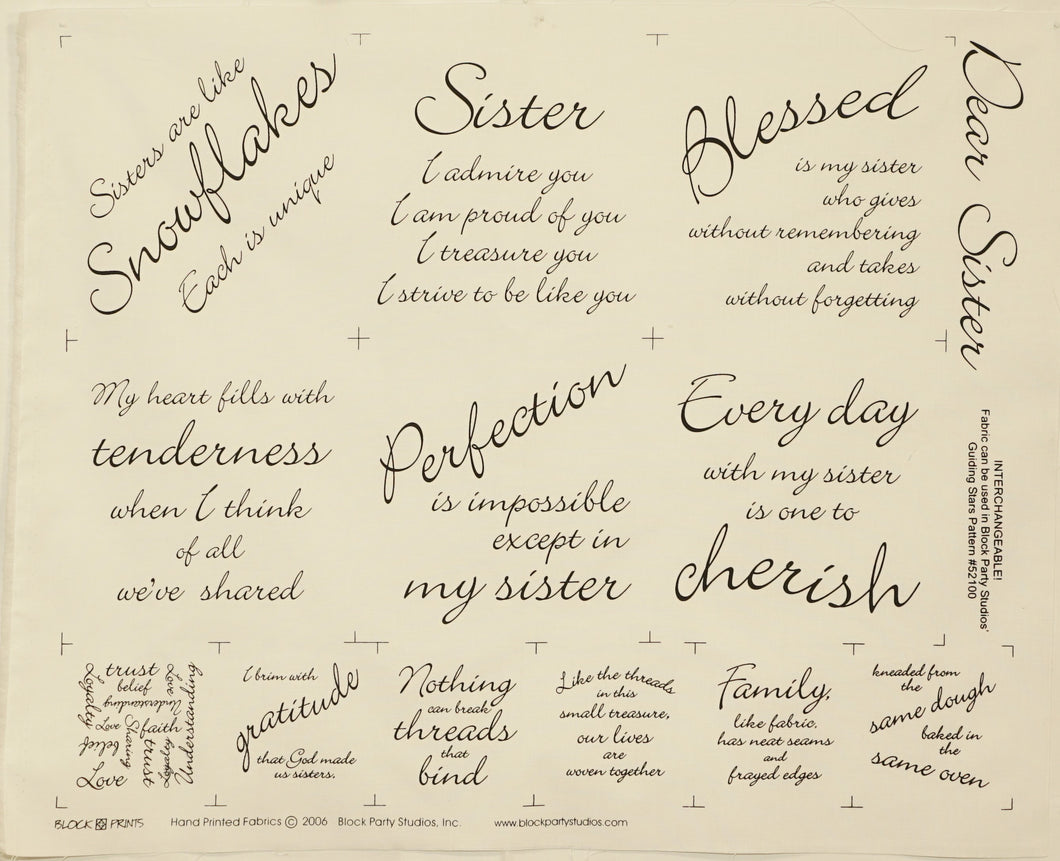 Sisters are like
Snowflakes
Each is unique
Sister
I admire you
I am proud of you
I treasure you
I strive to be like you
Blessed
is my sister
who gives
without remembering
and takes
without forgetting
Dear Sister
My heart fills with
tenderness
when I think
of all
we've shared
Perfection
is impossible
except in
my sister
Every day
with my sister
is one to
cherish
INTERCHANGEABLE!
Fabric can be used in Block Party Studios'
Guiding Stars Pattern #52100
trust
belief
Understanding
Love
Understanding
Loyalty
Love
faith
Sharing
belief
trust
Loyalty
Love
I brim with
gratitude
that God made
us sisters.
Nothing
can break
threads
that
bind
Like the threads
in this
small treasure,
our lives
are
woven together
Family,
like fabric,
has neat seams
and
frayed edges
kneaded from
the
same dough
baked in
the
same oven
BLOCK PRINTS
Hand Printed Fabrics © 2006 Block Party Studios, Inc. www.blockpartystudios.com